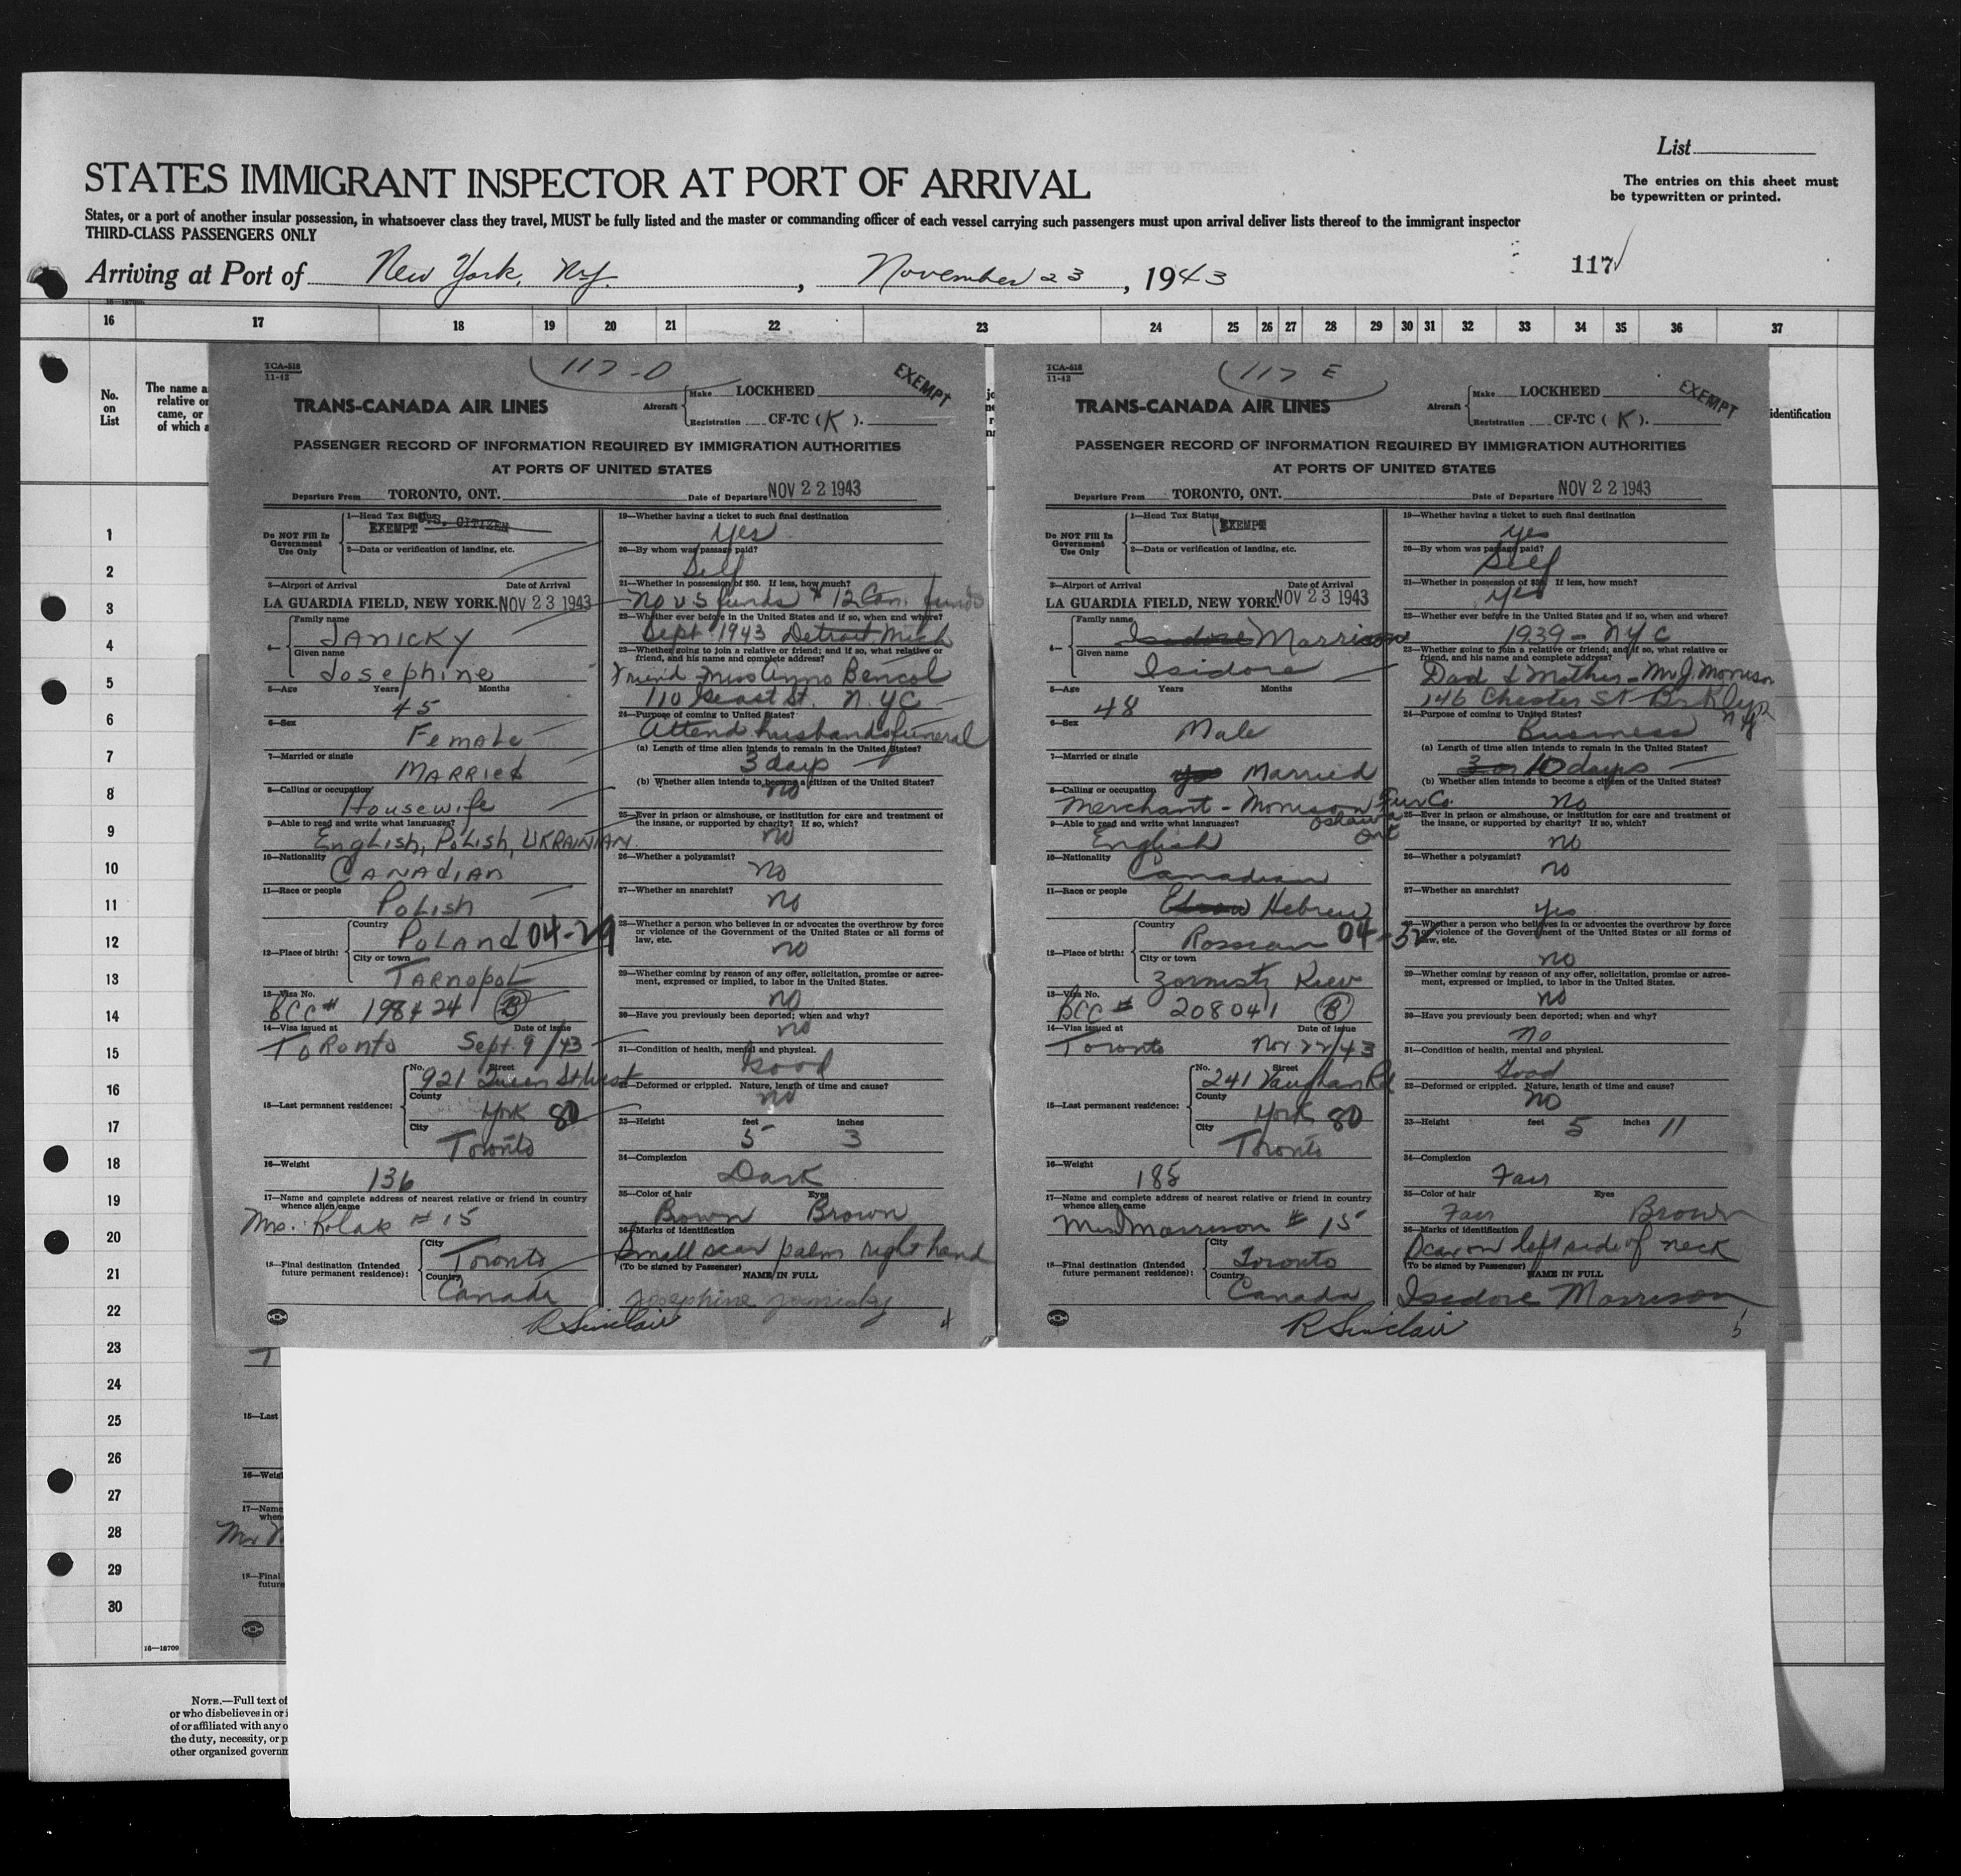 List
STATES IMMIGRANT INSPECTOR AT PORT OF ARRIVAL
The entries on this sheet must
be typewritten or printed.
States, or a port of another insular possession, in whatsoever class they travel, MUST be fully listed and the master or commanding officer of each vessel carrying such passengers must upon arrival deliver lists thereof to the immigrant inspector
THIRD-CLASS PASSENGERS ONLY
Arriving at Port of New York, N.Y., November 23, 1943
117
16 17 18 19 20 21 22 23 24 25 26 27 28 29 30 31 32 33 34 35 36 37
No.
on
List
The name a
relative or
came, or
of which a
identification
1
2
3
4
5
6
7
8
9
10
11
12
13
14
15
16
17
18
19
20
21
22
23
24
25
26
27
28
29
30
TCA-518
11-42
117-D
EXEMPT
TRANS-CANADA AIR LINES
Aircraft
Make LOCKHEED
Registration CF-TC (K).
PASSENGER RECORD OF INFORMATION REQUIRED BY IMMIGRATION AUTHORITIES
AT PORTS OF UNITED STATES
Departure From TORONTO, ONT.
Date of Departure NOV 22 1943
Do NOT Fill In
Government
Use Only
1—Head Tax Status
EXEMPT U.S. CITIZEN
2—Data or verification of landing, etc.
3—Airport of Arrival Date of Arrival
LA GUARDIA FIELD, NEW YORK. NOV 23 1943
4—
Family name
JANICKY
Given name
Josephine
5—Age Years Months
45
6—Sex
Female
7—Married or single
MARRIED
8—Calling or occupation
Housewife
9—Able to read and write what languages?
English, Polish, UKRAINIAN
10—Nationality
CANADIAN
11—Race or people
POLISH
12—Place of birth:
Country
POLAND 04-29
City or town
TARNOPOL
13—Visa No.
BCC# 198424 (B)
14—Visa issued at Date of issue
TORONTO Sept. 9/43
15—Last permanent residence:
No. Street
921 Queen St West
County
York 80
City
Toronto
16—Weight
136
17—Name and complete address of nearest relative or friend in country
whence alien came
Mrs. Kolak # 15
18—Final destination (Intended
future permanent residence):
City
Toronto
Country
Canada
19—Whether having a ticket to such final destination
Yes
20—By whom was passage paid?
Self
21—Whether in possession of $50. If less, how much?
No US funds $12 Can. funds
22—Whether ever before in the United States and if so, when and where?
Sept 1943 Detroit Mich
23—Whether going to join a relative or friend; and if so, what relative or
friend, and his name and complete address?
Friend Miss Anna Bencol
110 East St. N.Y.C
24—Purpose of coming to United States?
Attend husbands funeral
(a) Length of time alien intends to remain in the United States?
3 days
(b) Whether alien intends to become a citizen of the United States?
no
25—Ever in prison or almshouse, or institution for care and treatment of
the insane, or supported by charity? If so, which?
no
26—Whether a polygamist?
no
27—Whether an anarchist?
no
28—Whether a person who believes in or advocates the overthrow by force
or violence of the Government of the United States or all forms of
law, etc.
no
29—Whether coming by reason of any offer, solicitation, promise or agree-
ment, expressed or implied, to labor in the United States.
no
30—Have you previously been deported; when and why?
no
31—Condition of health, mental and physical.
Good
32—Deformed or crippled. Nature, length of time and cause?
no
33—Height feet inches
5 3
34—Complexion
Dark
35—Color of hair Eyes
Bown Brown
36—Marks of identification
Small scar palm right hand
(To be signed by Passenger)
NAME IN FULL
Josephine Janicky
R Sinclair
4
TCA-518
11-42
117 E
EXEMPT
TRANS-CANADA AIR LINES
Aircraft
Make LOCKHEED
Registration CF-TC (K).
PASSENGER RECORD OF INFORMATION REQUIRED BY IMMIGRATION AUTHORITIES
AT PORTS OF UNITED STATES
Departure From TORONTO, ONT.
Date of Departure NOV 22 1943
Do NOT Fill In
Government
Use Only
1—Head Tax Status
EXEMPT
2—Data or verification of landing, etc.
3—Airport of Arrival Date of Arrival
LA GUARDIA FIELD, NEW YORK. NOV 23 1943
4—
Family name
Isidore Morrison
Given name
Isidore
5—Age Years Months
48
6—Sex
Male
7—Married or single
yes Married
8—Calling or occupation
Merchant - Morrison Fur Co.
Oshawa
Ont
9—Able to read and write what languages?
English
10—Nationality
Canadian
11—Race or people
Hebrew
12—Place of birth:
Country
Rossian 04-32
City or town
Kiev
13—Visa No.
BCC # 208041 (B)
14—Visa issued at Date of issue
Toronto Nov 22/43
15—Last permanent residence:
No. Street
241 Vaughan Rd
County
York 80
City
Toronto
16—Weight
185
17—Name and complete address of nearest relative or friend in country
whence alien came
Mrs Morrison # 15
18—Final destination (Intended
future permanent residence):
City
Toronto
Country
Canada
19—Whether having a ticket to such final destination
yes
20—By whom was passage paid?
Self
21—Whether in possession of $50 If less, how much?
yes
22—Whether ever before in the United States and if so, when and where?
1939 - NYC
23—Whether going to join a relative or friend; and if so, what relative or
friend, and his name and complete address?
Dad & Mother - Mr J. Morrison
146 Chester St Brklyn
NY
24—Purpose of coming to United States?
Business
(a) Length of time alien intends to remain in the United States?
3 or 10 days
(b) Whether alien intends to become a citizen of the United States?
no
25—Ever in prison or almshouse, or institution for care and treatment of
the insane, or supported by charity? If so, which?
no
26—Whether a polygamist?
no
27—Whether an anarchist?
yes
28—Whether a person who believes in or advocates the overthrow by force
or violence of the Government of the United States or all forms of
law, etc.
no
29—Whether coming by reason of any offer, solicitation, promise or agree-
ment, expressed or implied, to labor in the United States.
no
30—Have you previously been deported; when and why?
no
31—Condition of health, mental and physical.
Good
32—Deformed or crippled. Nature, length of time and cause?
no
33—Height feet 5 inches 11
34—Complexion
Fair
35—Color of hair Eyes
Fair Brown
36—Marks of identification
Scar on left side of neck
(To be signed by Passenger)
NAME IN FULL
Isidore Morrison
R Sinclair
5
15—Last
16—Weig
17—Name
when
Mr
18—Final
future
16—18709
NOTE.—Full text of
or who disbelieves in or i
of or affiliated with any o
the duty, necessity, or p
other organized governm